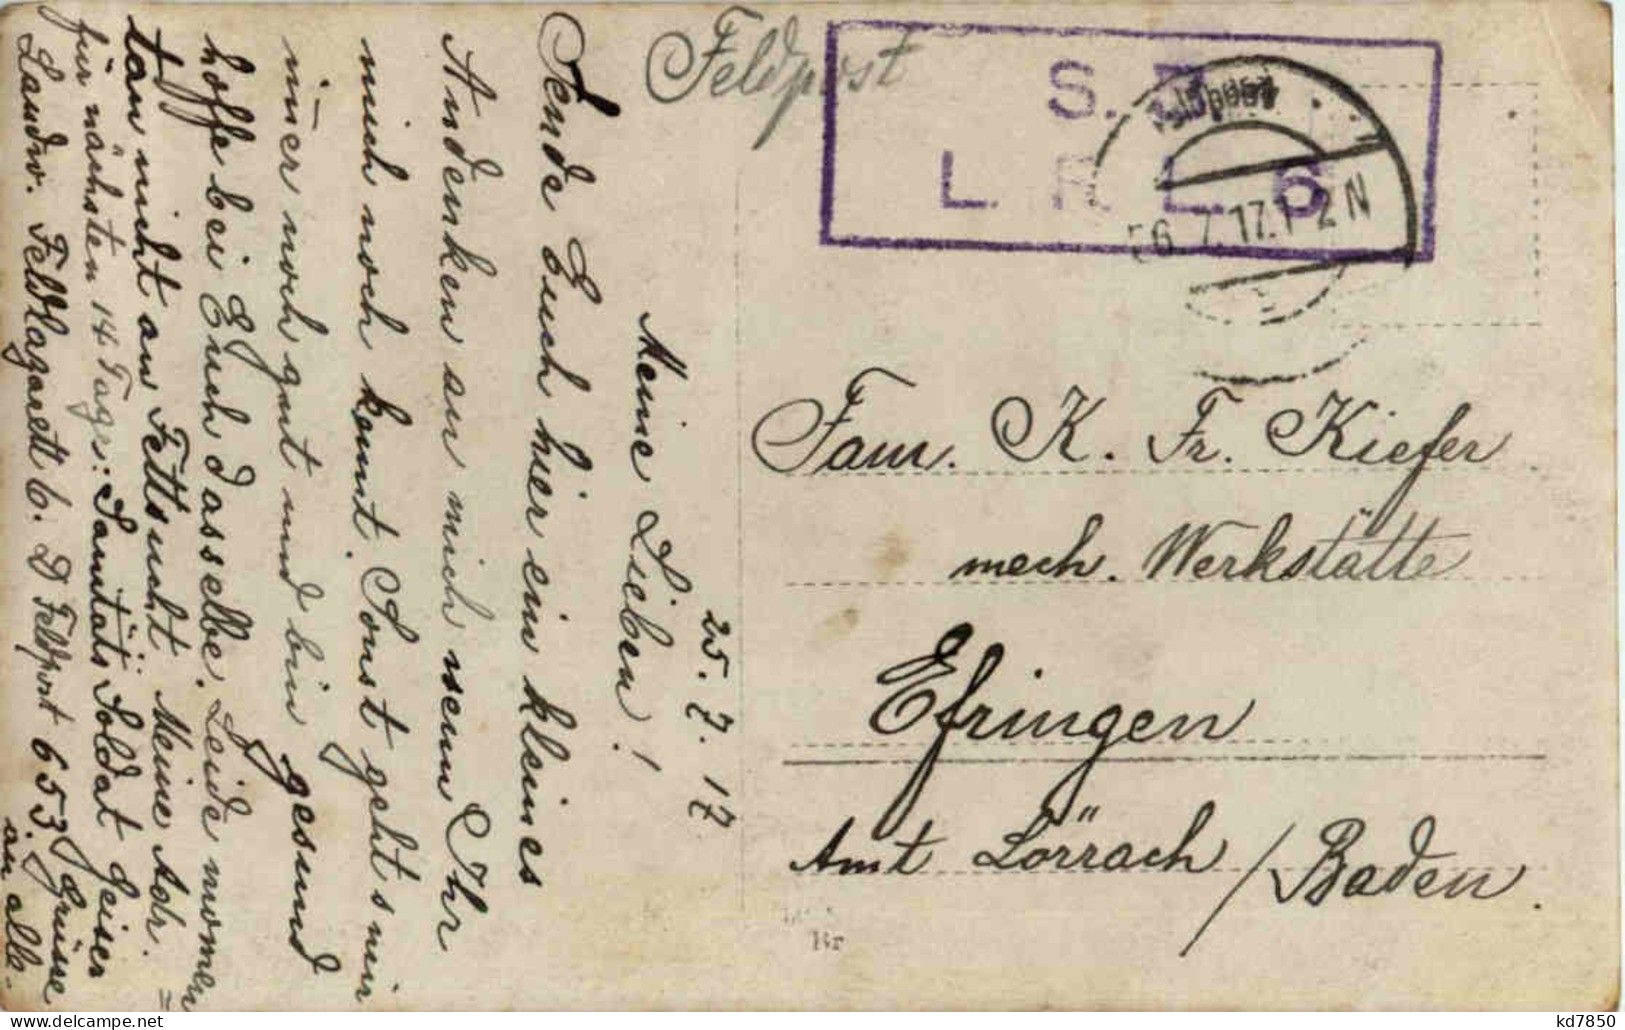 Feldpost
S. B.
L. R. L 6
Feldpost
26.7.17.1-2N
25. 7. 17
Meine Lieben!
Sende Euch hier ein kleines
Andenken an mich wenn Ihr
mich noch kennt. Sonst geht's mir
im̄er noch gut und bin gesund
hoffe bei Euch dasselbe. Leide momen
=
tan nicht an Fettsucht. Meine Adr.
für nächsten 14 Tage: Sanitäts Soldat Geier
Landw. Feldlazarett 6. D Feldpost 653. Grüsse
an alle.
Fam. K. Fr. Kiefer
mech. Werkstätte
Efringen
Amt Lörrach / Baden.
kd7850